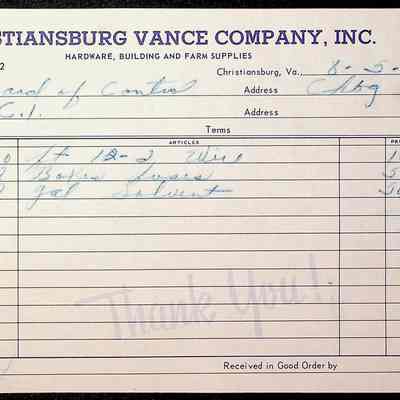 STIANSBURG VANCE COMPANY, INC.
HARDWARE, BUILDING AND FARM SUPPLIES
2
Christiansburg, Va., 8-5-
oard of Control Address Cbg
C.I. Address
Terms
ARTICLES
0 ft 12-2 Wire 1
Boxes Fuses 5
gal Solvent 50
Thank You!
Received in Good Order by